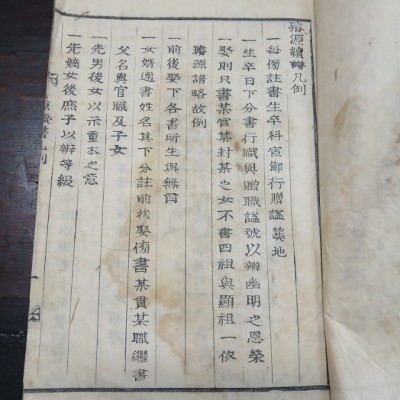 璿源續譜凡例
一每傍註書生卒科宦鄕行贈諡葬地
一生卒日下分書行職與贈職諡號以辨幽明之恩榮
一娶則只書某官某封某之女不書四祖與顯祖一依
璿源譜略故例
一前後娶下各書所生與無育
一女婿適書姓名其下分註前後娶傍書某貫某職繼書
父名與官職及子女
一先男後女以示重本之意
一先嫡女後庶子以辨等級